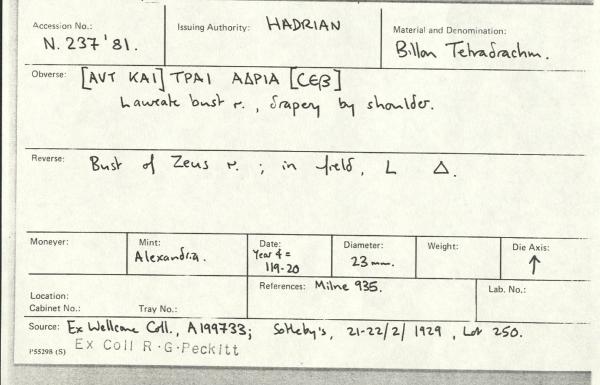 Accession No.: N. 237'81.
Issuing Authority: HADRIAN
Material and Denomination: Billon Tetradrachm.
Obverse: [ΑVΤ ΚΑΙ] ΤΡΑΙ ΑΔΡΙΑ [CЄB]
Laureate bust r., drapery by shoulder.
Reverse: Bust of Zeus r. ; in field, L Δ.
Moneyer:
Mint: Alexandria.
Date: Year 4 =
119-20
Diameter: 23 mm.
Weight:
Die Axis: ↑
Location:
Cabinet No.: Tray No.:
References: Milne 935.
Lab. No.:
Source: Ex Wellcome Coll., A199733; Sotheby's, 21-22/2/1929, Lot 250.
P55298 (S) Ex Coll R·G·Peckitt